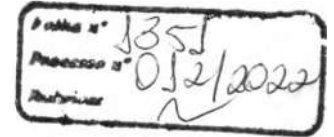 Folha nº 1351
Processo nº 012/2022
Rubrica: